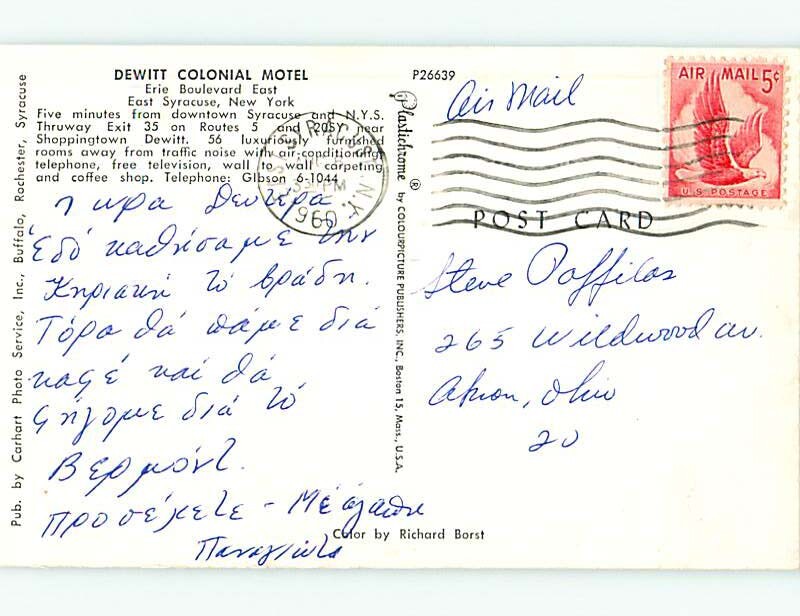 DEWITT COLONIAL MOTEL
Erie Boulevard East
East Syracuse, New York
Five minutes from downtown Syracuse and N.Y.S.
Thruway Exit 35 on Routes 5 and 20SY near
Shoppingtown Dewitt. 56 luxuriously furnished
rooms away from traffic noise with air-conditioning,
telephone, free television, wall to wall carpeting
and coffee shop. Telephone: GIbson 6-1044
7 ωρα Δευτέρα
Ἐδό καθήσαμε την
Κηριακή τό βράδη.
Τόρα θά πάμε διά
καφέ καί θά
φήγομε διά τό
Βερμόντ.
Προσέχετε - Μέ ἀγάπη
Παναγιώτα
Pub. by Carhart Photo Service, Inc., Buffalo, Rochester, Syracuse
P26639
Plastichrome ® by COLOURPICTURE PUBLISHERS, INC., Boston 15, Mass., U.S.A.
Color by Richard Borst
Air Mail
SYRACUSE N.Y.
PM
1960
AIR MAIL 5¢
U.S. POSTAGE
POST CARD
Steve
265 Wildwood av.
Akron, Ohio
20